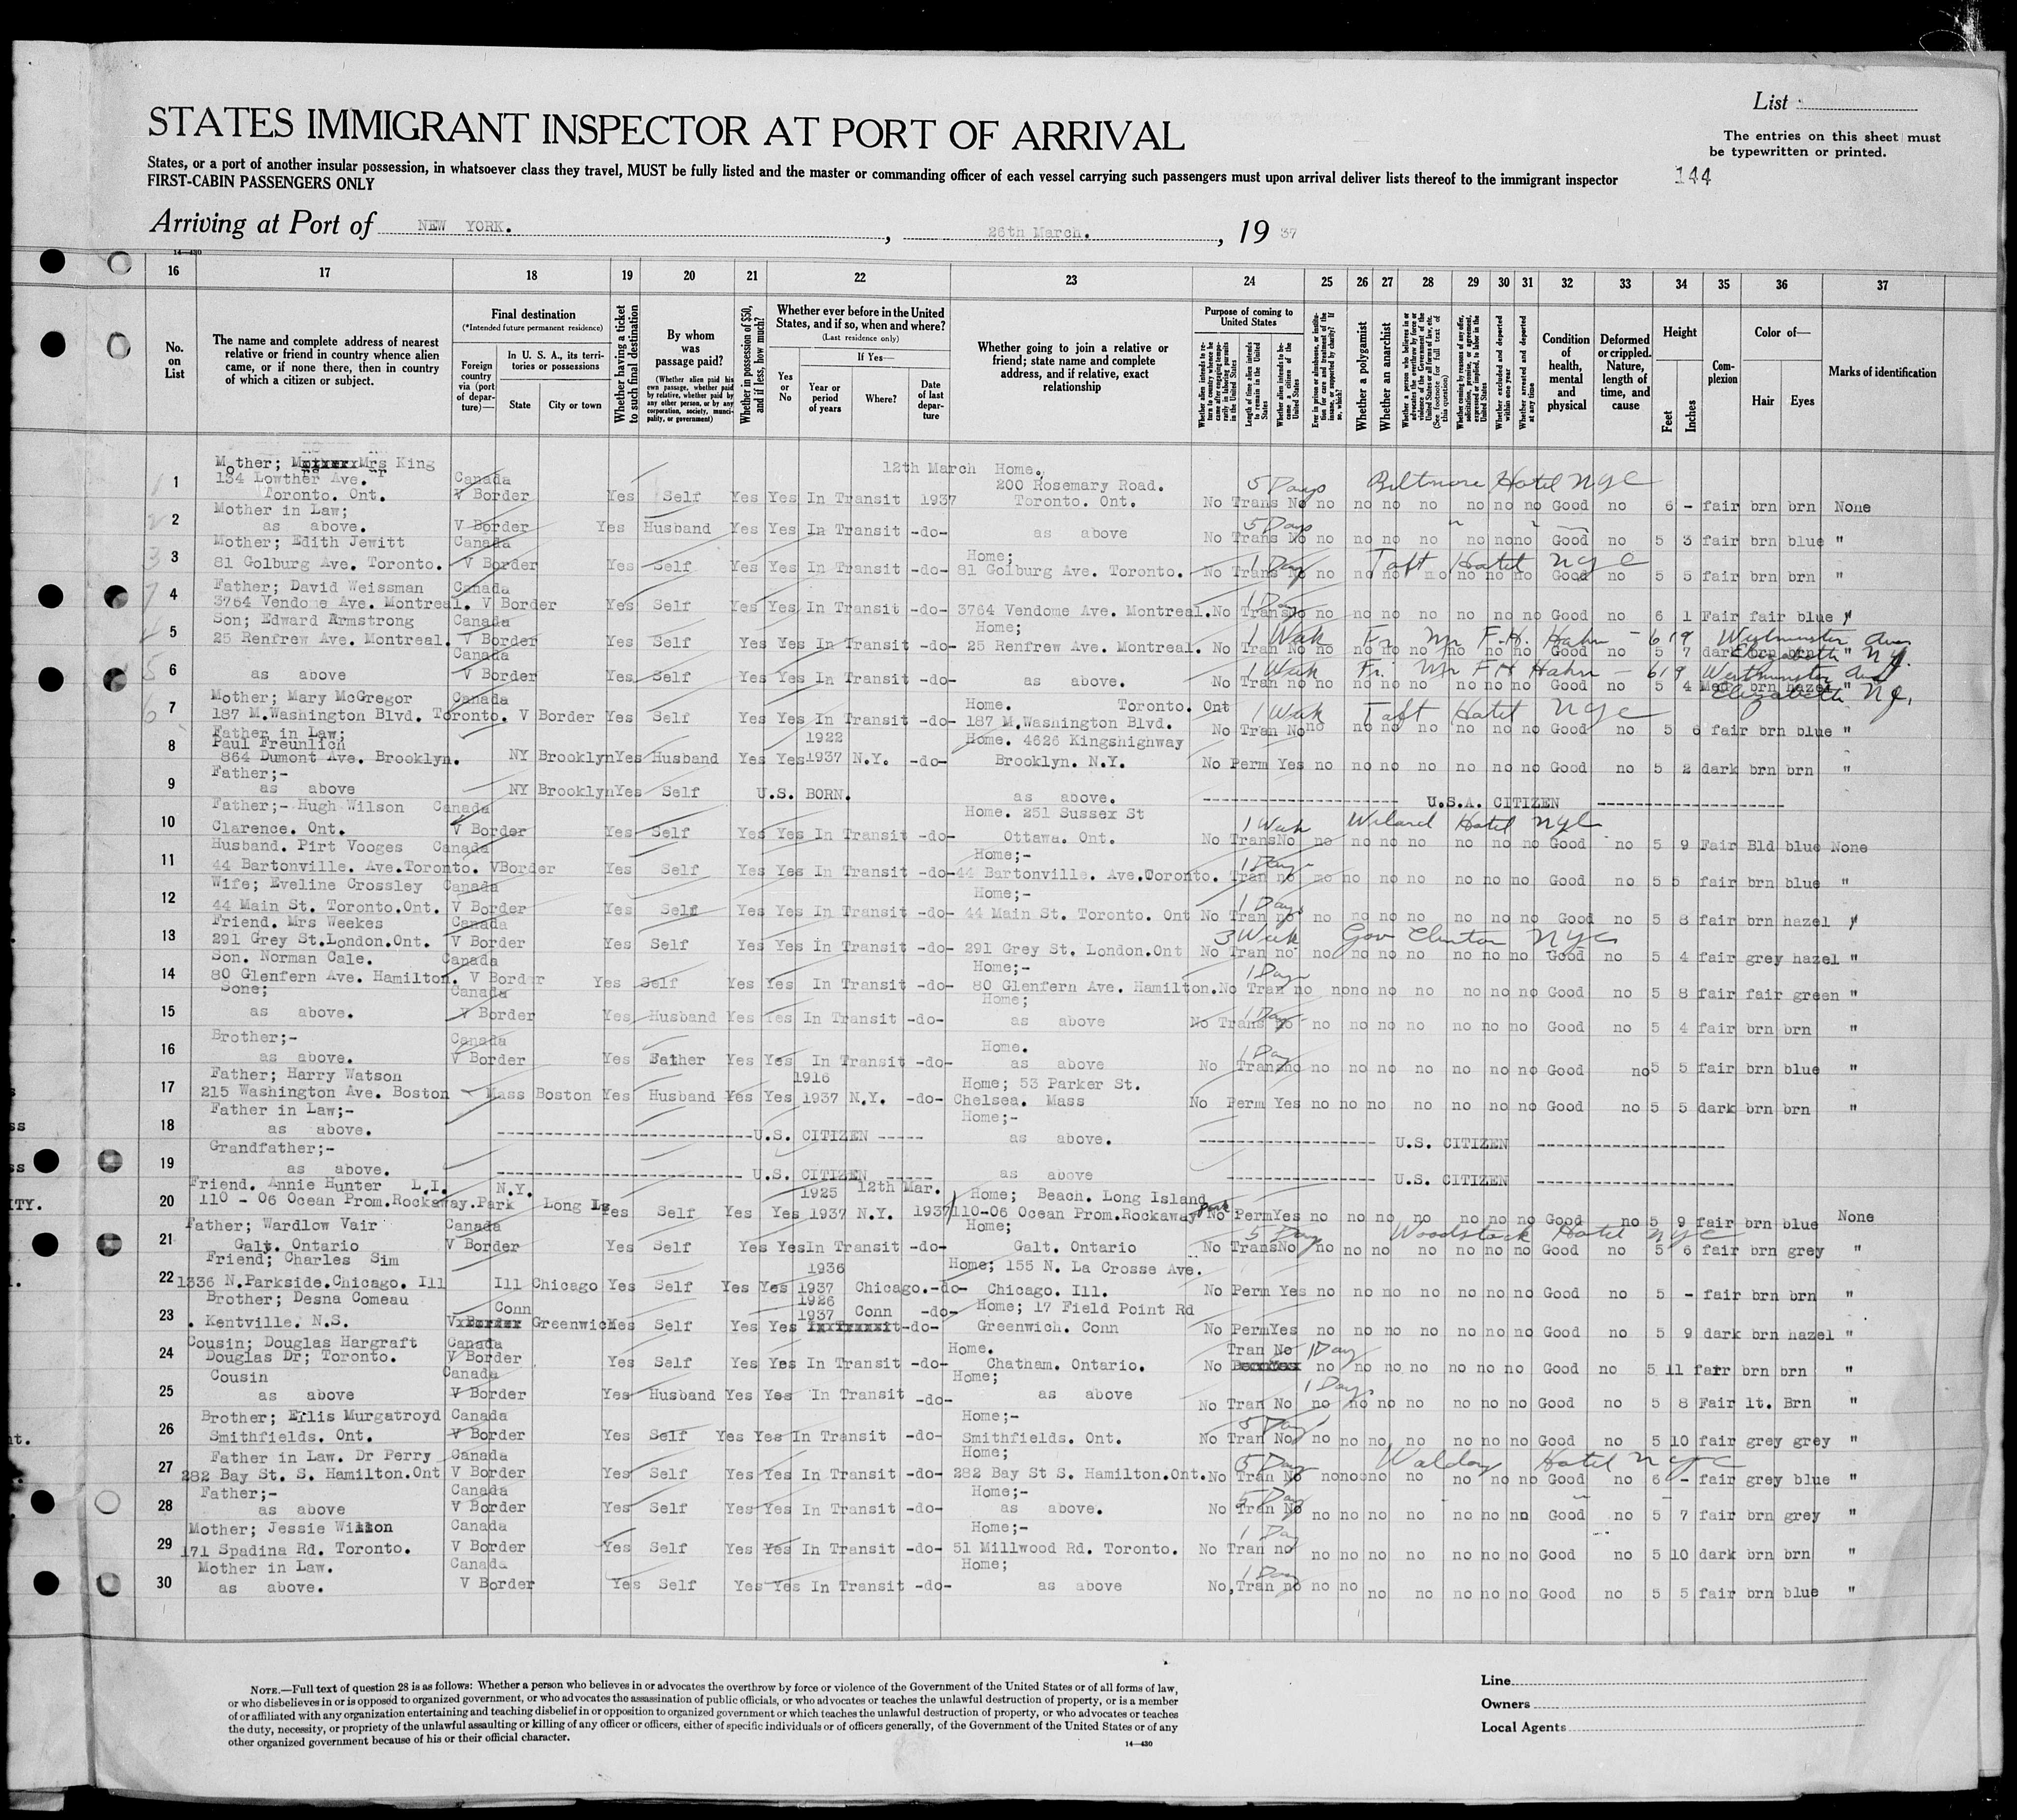 List
STATES IMMIGRANT INSPECTOR AT PORT OF ARRIVAL
The entries on this sheet must
be typewritten or printed.
States, or a port of another insular possession, in whatsoever class they travel, MUST be fully listed and the master or commanding officer of each vessel carrying such passengers must upon arrival deliver lists thereof to the immigrant inspector
FIRST-CABIN PASSENGERS ONLY
144
Arriving at Port of NEW YORK. , 26th March. , 19 37
14—430
16 17 18 19 20 21 22 23 24 25 26 27 28 29 30 31 32 33 34 35 36 37
No. on List
The name and complete address of nearest relative or friend in country whence alien came, or if none there, then in country of which a citizen or subject.
Final destination
(*Intended future permanent residence)
Foreign country via (port of departure)—
In U. S. A., its territories or possessions
State
City or town
Whether having a ticket to such final destination
By whom was passage paid?
(Whether alien paid his own passage, whether paid by relative, whether paid by any other person, or by any corporation, society, municipality, or government)
Whether in possession of $50, and if less, how much?
Whether ever before in the United States, and if so, when and where?
(Last residence only)
If Yes—
Yes or No
Year or period of years
Where?
Date of last departure
Whether going to join a relative or friend; state name and complete address, and if relative, exact relationship
Purpose of coming to United States
Length of time alien intends to remain in the United States
Whether alien intends to become a citizen of the United States
Whether a polygamist
Whether an anarchist
Whether excluded and deported within one year
Whether arrested and deported at any time
Condition of health, mental and physical
Deformed or crippled. Nature, length of time, and cause
Height
Feet
Inches
Complexion
Color of—
Hair
Eyes
Marks of identification
Mother; Mrs King 12th March Home.
1 134 Lowther Ave. Canada 200 Rosemary Road. 5 Days Biltmore Hotel NYC
Toronto. Ont. V Border Yes Self Yes Yes In Transit 1937 Toronto. Ont. No Trans No no no no no no no no Good no 6 - fair brn brn None
Mother in Law;
2 as above. V Border Yes Husband Yes Yes In Transit -do- as above 5 Days No Trans No no no no no no no no Good no 5 3 fair brn blue "
Mother; Edith Jewitt Canada Home;
3 81 Golburg Ave. Toronto. V Border Yes Self Yes Yes In Transit -do- 81 Golburg Ave. Toronto. 1 Day Taft Hotel NYC No Trans No no no no no no no no Good no 5 5 fair brn brn "
Father; David Weissman Canada
4 3764 Vendome Ave. Montreal. V Border Yes Self Yes Yes In Transit -do- 3764 Vendome Ave. Montreal. No Trans No no no no no no no no Good no 6 1 Fair fair blue "
Son; Edward Armstrong Canada Home;
5 25 Renfrew Ave. Montreal. V Border Yes Self Yes Yes In Transit -do- 25 Renfrew Ave. Montreal. 1 Week Fr. Mr F.H. Hahn - 619 Westminster Ave Elizabeth NJ. No Tran No no no no no no no no Good no 5 7 dark brn brn "
Canada
6 as above V Border Yes Self Yes Yes In Transit -do- as above. 1 Week Fr. Mr F H Hahn - 619 Westminster Ave Elizabeth NJ. No Tran no no no no no no no no Good no 5 4 Med brn hazel "
Mother; Mary McGregor Canada Home. Toronto. Ont
7 187 M.Washington Blvd. Toronto. V Border Yes Self Yes Yes In Transit -do- 187 M.Washington Blvd. 1 Week Taft Hotel NYC No Tran No no no no no no no no Good no 5 6 fair brn blue "
Father in Law; 1922 Home. 4626 Kingshighway
8 Paul Freunlich
864 Dumont Ave. Brooklyn. NY Brooklyn Yes Husband Yes Yes 1937 N.Y. -do- Brooklyn. N.Y. No Perm Yes no no no no no no no Good no 5 2 dark brn brn "
Father;-
9 as above NY Brooklyn Yes Self U.S. BORN. as above. U.S.A. CITIZEN
Father;- Hugh Wilson Canada Home. 251 Sussex St
10 Clarence. Ont. V Border Yes Self Yes Yes In Transit -do- Ottawa. Ont. 1 Week Hotel NYC No Trans No no no no no no no no Good no 5 9 Fair Bld blue None
Husband. Pirt Vooges Canada Home;-
11 44 Bartonville. Ave.Toronto. VBorder Yes Self Yes Yes In Transit -do- 44 Bartonville. Ave.Toronto. 1 Day Tran no no no no no no no no Good no 5 5 fair brn blue "
Wife; Eveline Crossley Canada Home;-
12 44 Main St. Toronto.Ont. V Border Yes Self Yes Yes In Transit -do- 44 Main St. Toronto. Ont 1 Day No Tran no no no no no no no no Good no 5 8 fair brn hazel "
Friend. Mrs Weekes Canada
13 291 Grey St.London.Ont. V Border Yes Self Yes Yes in Transit -do- 291 Grey St. London.Ont 3 Week Gov Clinton NYC No Tran no no no no no no no no Good no 5 4 fair grey hazel "
Son. Norman Cale. Canada Home;-
14 80 Glenfern Ave. Hamilton. V Border Yes Self Yes Yes In Transit -do- 80 Glenfern Ave. Hamilton. 1 Day No Tran no no no no no no no no Good no 5 8 fair fair green "
Sone; Canada Home;
15 as above. V Border Yes Husband Yes Yes In Transit -do- as above 1 Day No Trans no no no no no no no no Good no 5 4 fair brn brn "
Brother;- Canada Home.
16 as above. V Border Yes Father Yes Yes In Transit -do- as above 1 Day No Trans no no no no no no no no Good no 5 5 fair brn blue "
Father; Harry Watson 1916 Home; 53 Parker St.
17 215 Washington Ave. Boston Mass Boston Yes Husband Yes Yes 1937 N.Y. -do- Chelsea. Mass No Perm Yes no no no no no no no Good no 5 5 dark brn brn "
Father in Law;- Home;-
18 as above. U.S. CITIZEN as above. U.S. CITIZEN
Grandfather;-
19 as above. U.S. CITIZEN as above U.S. CITIZEN
Friend. Annie Hunter L.I. N.Y. 1925 12th Mar. Home; Beach. Long Island
20 110 - 06 Ocean Prom.Rockaway.Park Long Is Yes Self Yes Yes 1937 N.Y. 1937 110-06 Ocean Prom.Rockaway Park No Perm Yes no no no no no no no Good no 5 9 fair brn blue None
Father; Wardlow Vair Canada Home;
21 Galt. Ontario V Border Yes Self Yes Yes In Transit -do- Galt. Ontario 5 Day Woodstock Hotel NYC No Trans No no no no no no no no Good no 5 6 fair brn grey "
Friend; Charles Sim 1936 Home; 155 N. La Crosse Ave.
22 1336 N.Parkside.Chicago. Ill Ill Chicago Yes Self Yes Yes 1937 Chicago. -do- Chicago. Ill. No Perm Yes no no no no no no no Good no 5 - fair brn brn "
Brother; Desna Comeau Conn 1926 Home; 17 Field Point Rd
23 Kentville. N.S. Greenwich Yes Self Yes Yes 1937 Conn -do- Greenwich. Conn No Perm Yes no no no no no no no Good no 5 9 dark brn hazel "
Cousin; Douglas Hargraft Canada Home. Tran No 1 Day
24 Douglas Dr; Toronto. V Border Yes Self Yes Yes In Transit -do- Chatham. Ontario. No no no no no no no no Good no 5 11 fair brn brn "
Cousin Canada Home; 1 Day
25 as above V Border Yes Husband Yes Yes In Transit -do- as above No Tran No no no no no no no no Good no 5 8 Fair lt. Brn "
Brother; Ellis Murgatroyd Canada Home;-
26 Smithfields. Ont. V Border Yes Self Yes Yes In Transit -do- Smithfields. Ont. 5 Day No Tran No no no no no no no no Good no 5 10 fair grey grey "
Father in Law. Dr Perry Canada Home;
27 282 Bay St. S. Hamilton.Ont V Border Yes Self Yes Yes In Transit -do- 282 Bay St S. Hamilton.Ont. 5 Day Waldorf Hotel NYC No Tran No no no no no no no no Good no 6 - fair grey blue "
Father;- Canada Home;-
28 as above V Border Yes Self Yes Yes In Transit -do- as above. 5 Day No Tran No no no no no no no no Good no 5 7 fair brn grey "
Mother; Jessie Wilson Canada Home;-
29 171 Spadina Rd. Toronto. V Border Yes Self Yes Yes In Transit -do- 51 Millwood Rd. Toronto. 1 Day No Tran no no no no no no no no Good no 5 10 dark brn brn "
Mother in Law. Canada Home;
30 as above. V Border Yes Self Yes Yes In Transit -do- as above 1 Day No, Tran no no no no no no no no Good no 5 5 fair brn blue "
NOTE.—Full text of question 28 is as follows: Whether a person who believes in or advocates the overthrow by force or violence of the Government of the United States or of all forms of law,
or who disbelieves in or is opposed to organized government, or who advocates the assassination of public officials, or who advocates or teaches the unlawful destruction of property, or is a member
of or affiliated with any organization entertaining and teaching disbelief in or opposition to organized government or which teaches the unlawful destruction of property, or who advocates or teaches
the duty, necessity, or propriety of the unlawful assaulting or killing of any officer or officers, either of specific individuals or of officers generally, of the Government of the United States or of any
other organized government because of his or their official character.
14—430
Line
Owners
Local Agents